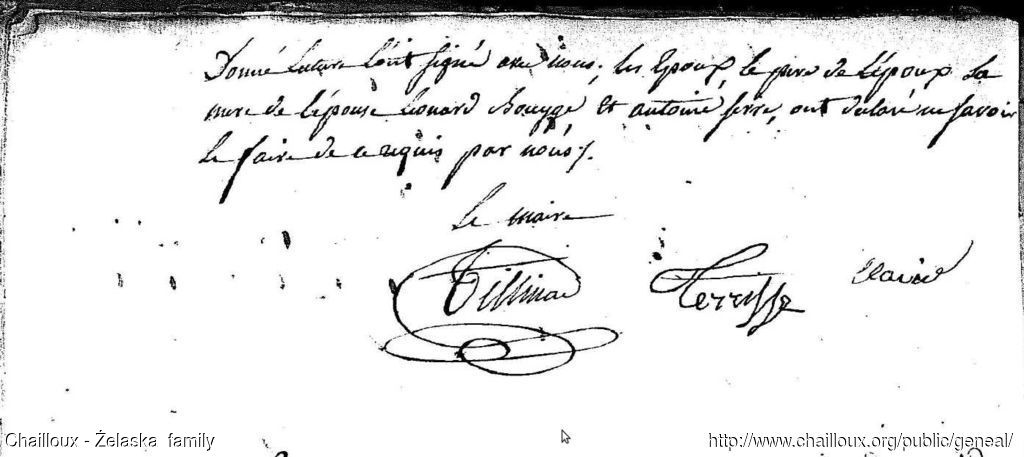 Donné lecture l'ont signé avec nous, les Epoux, le pere de l'époux La
mere de l'épouse Léonard Bouyge et antoine serre, ont déclaré ne savoir
le faire de ce requis par nous /.
Le maire
Tillinac
Terrisse
Chailloux - Żelaska family
http://www.chailloux.org/public/geneal/